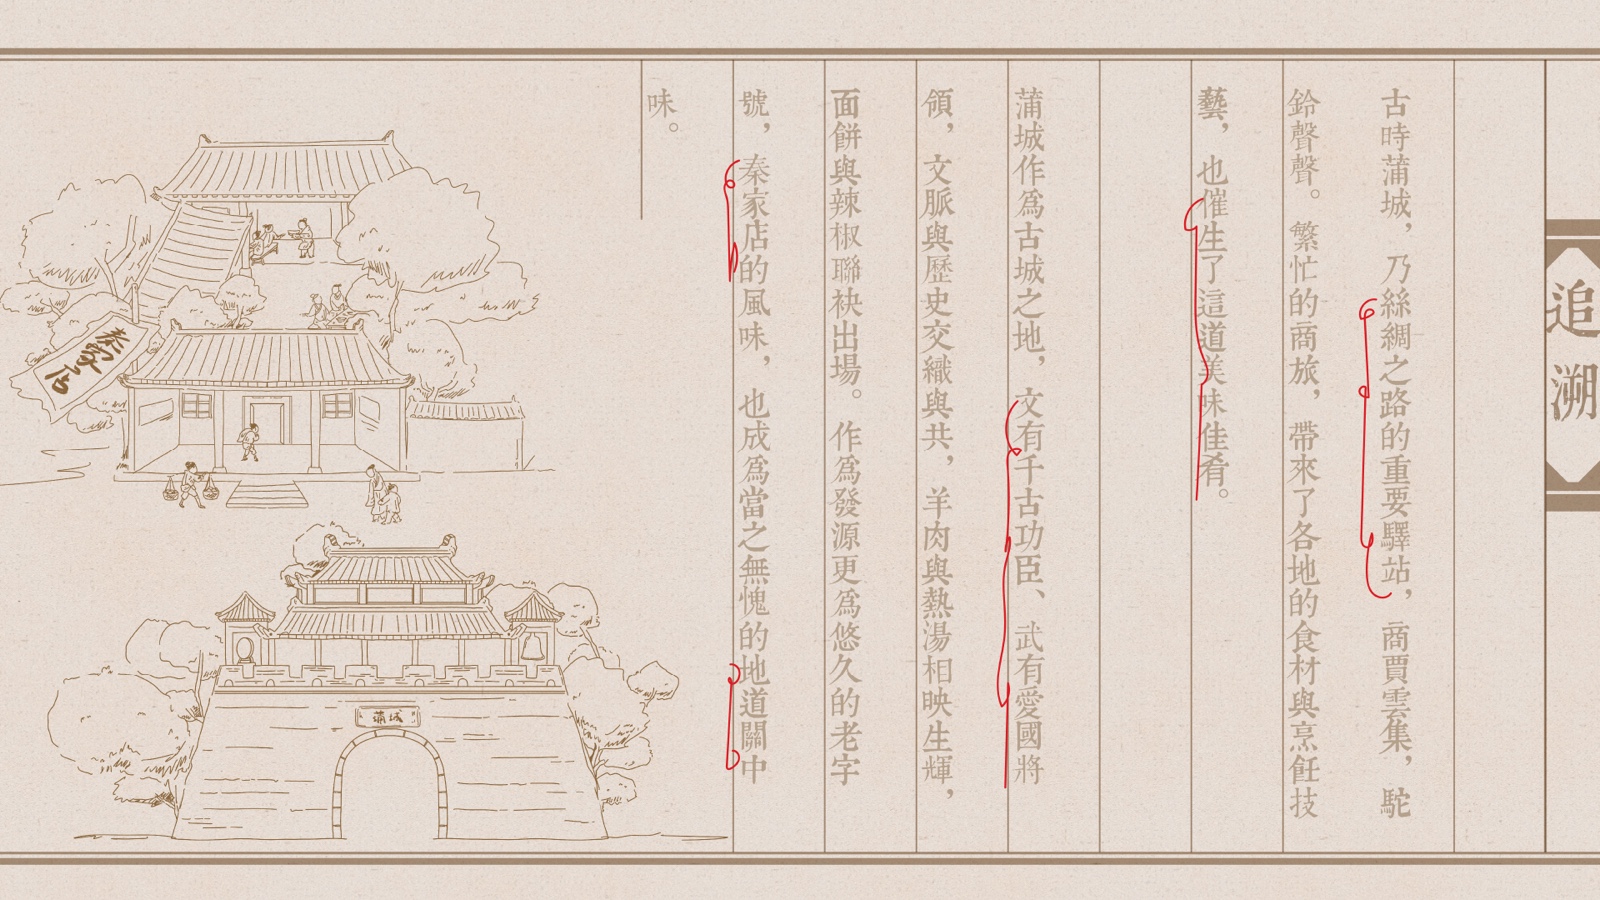 追溯
古時蒲城，乃絲綢之路的重要驛站，商賈雲集，駝
鈴聲聲。繁忙的商旅，帶來了各地的食材與烹飪技
藝，也催生了這道美味佳肴。
蒲城作爲古城之地，文有千古功臣、武有愛國將
領，文脈與歷史交織與共，羊肉與熱湯相映生輝，
面餅與辣椒聯袂出場。作爲發源更爲悠久的老字
號，秦家店的風味，也成爲當之無愧的地道關中
味。
秦家店
蒲城